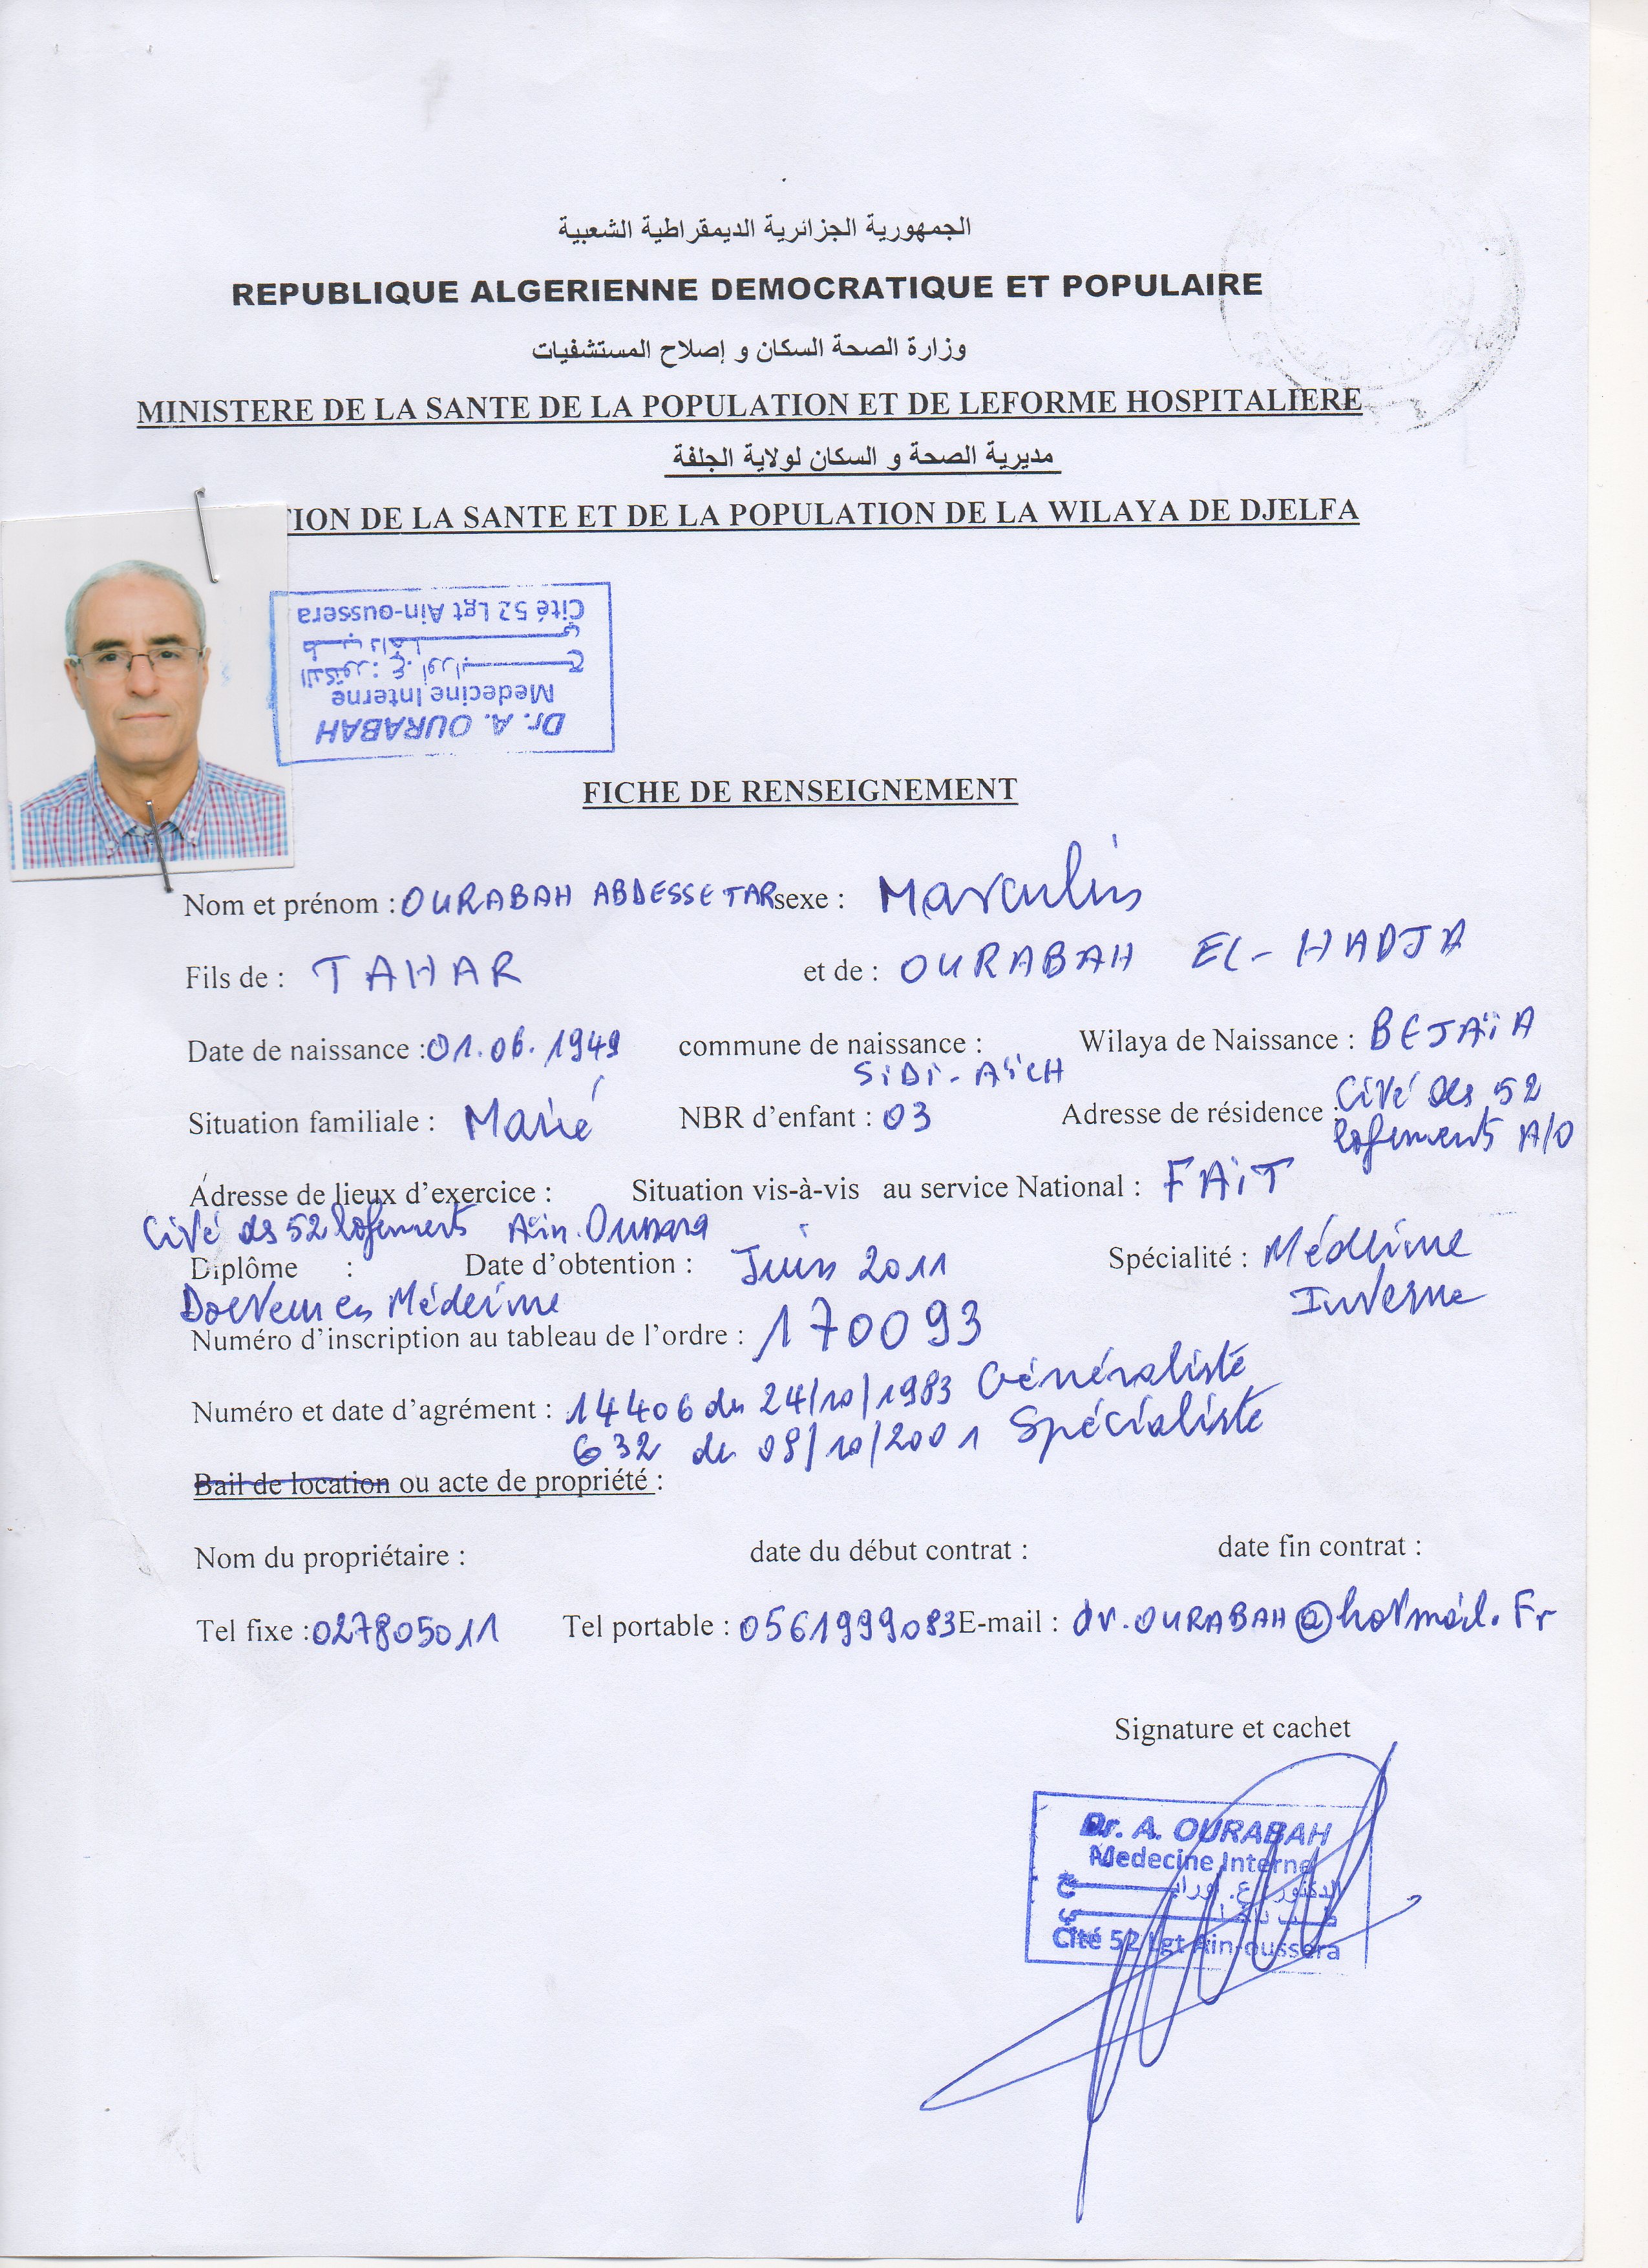 الجمهورية الجزائرية الديمقراطية الشعبية
REPUBLIQUE ALGERIENNE DEMOCRATIQUE ET POPULAIRE
وزارة الصحة السكان و إصلاح المستشفيات
MINISTERE DE LA SANTE DE LA POPULATION ET DE LEFORME HOSPITALIERE
مديرية الصحة و السكان لولاية الجلفة
TION DE LA SANTE ET DE LA POPULATION DE LA WILAYA DE DJELFA
Dr. A. OURABAH
Medecine Interne
الدكتور : ع. اورابح
طب داخلي
Cité 52 Lgt Ain-oussera
FICHE DE RENSEIGNEMENT
Nom et prénom : OURABAH ABDESSETAR sexe : Masculin
Fils de : TAHAR et de : OURABAH EL-HADJA
Date de naissance : 01.06.1949 commune de naissance : Wilaya de Naissance : BEJAïA
SiDi-AïCH
Situation familiale : Marié NBR d’enfant : 03 Adresse de résidence : Cité des 52
logements A/O
Adresse de lieux d’exercice : Situation vis-à-vis au service National : FAiT
Cité des 52 logements Ain.Oussera
Diplôme : Date d’obtention : Juin 2011 Spécialité : Médecine
Docteur en Médecine Interne
Numéro d’inscription au tableau de l’ordre : 170093
Numéro et date d’agrément : 14406 du 24/10/1983 Généraliste
632 du 09/10/2001 Spécialiste
Bail de location ou acte de propriété :
Nom du propriétaire : date du début contrat : date fin contrat :
Tel fixe : 027805011 Tel portable : 0561999083 E-mail : dr.OURABAH@hotmail.Fr
Signature et cachet
Dr. A. OURABAH
Medecine Interne
الدكتور : ع. اورابح
طب داخلي
Cité 52 Lgt Ain-oussera